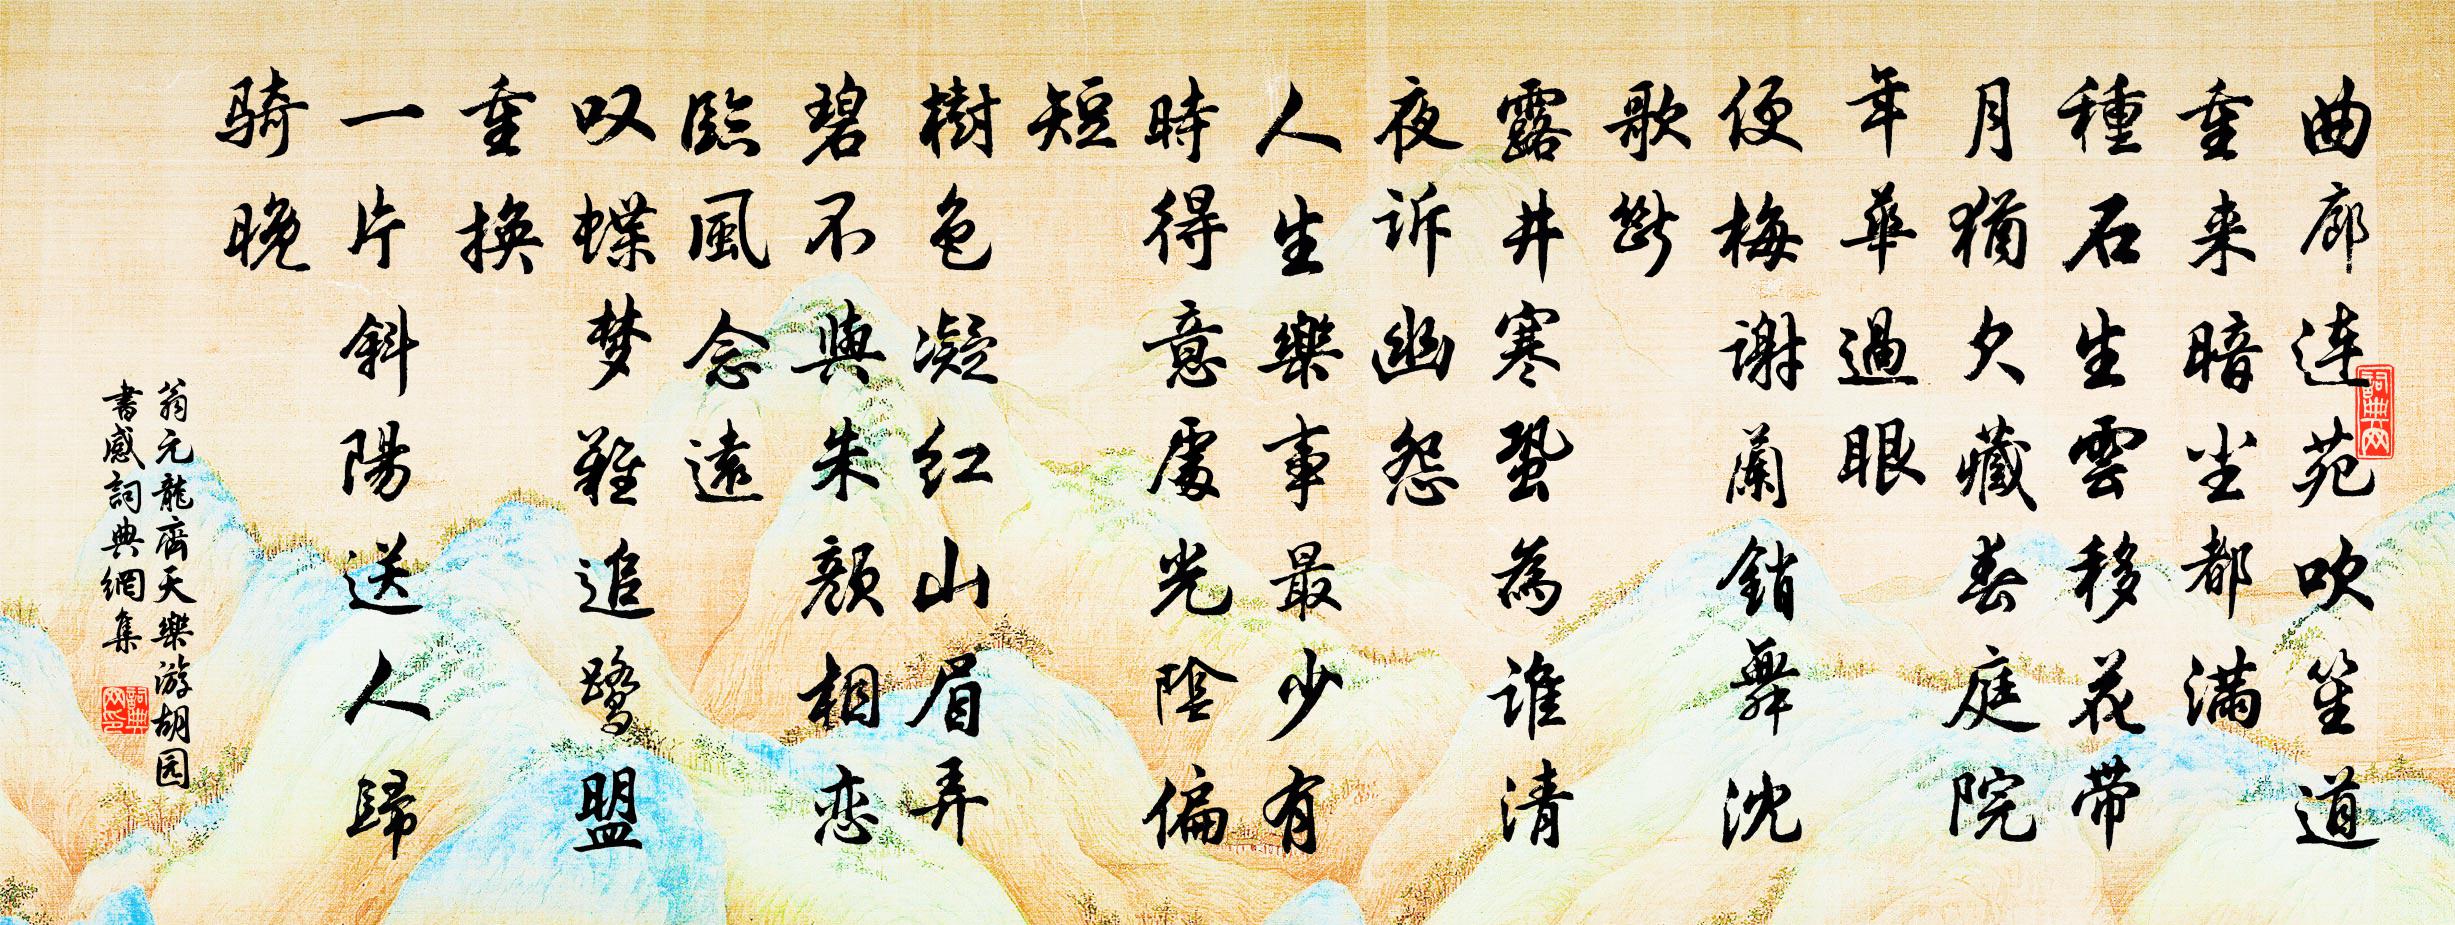 曲廊连苑吹笙道
重来暗尘都满
種石生雲移花带
月猶欠藏春庭院
年華過眼
便梅谢蘭銷舞沈
歌斷
露井寒蛩為谁清
夜诉幽怨
人生樂事最少有
時得意處光陰偏
短
樹色凝红山眉弄
碧不與朱颜相恋
臨風念遠
叹蝶梦難追鷺盟
重换
一片斜陽送人歸
骑晚
翁元龍齊天樂游胡园
書感詞典網集
詞典网
詞典网印